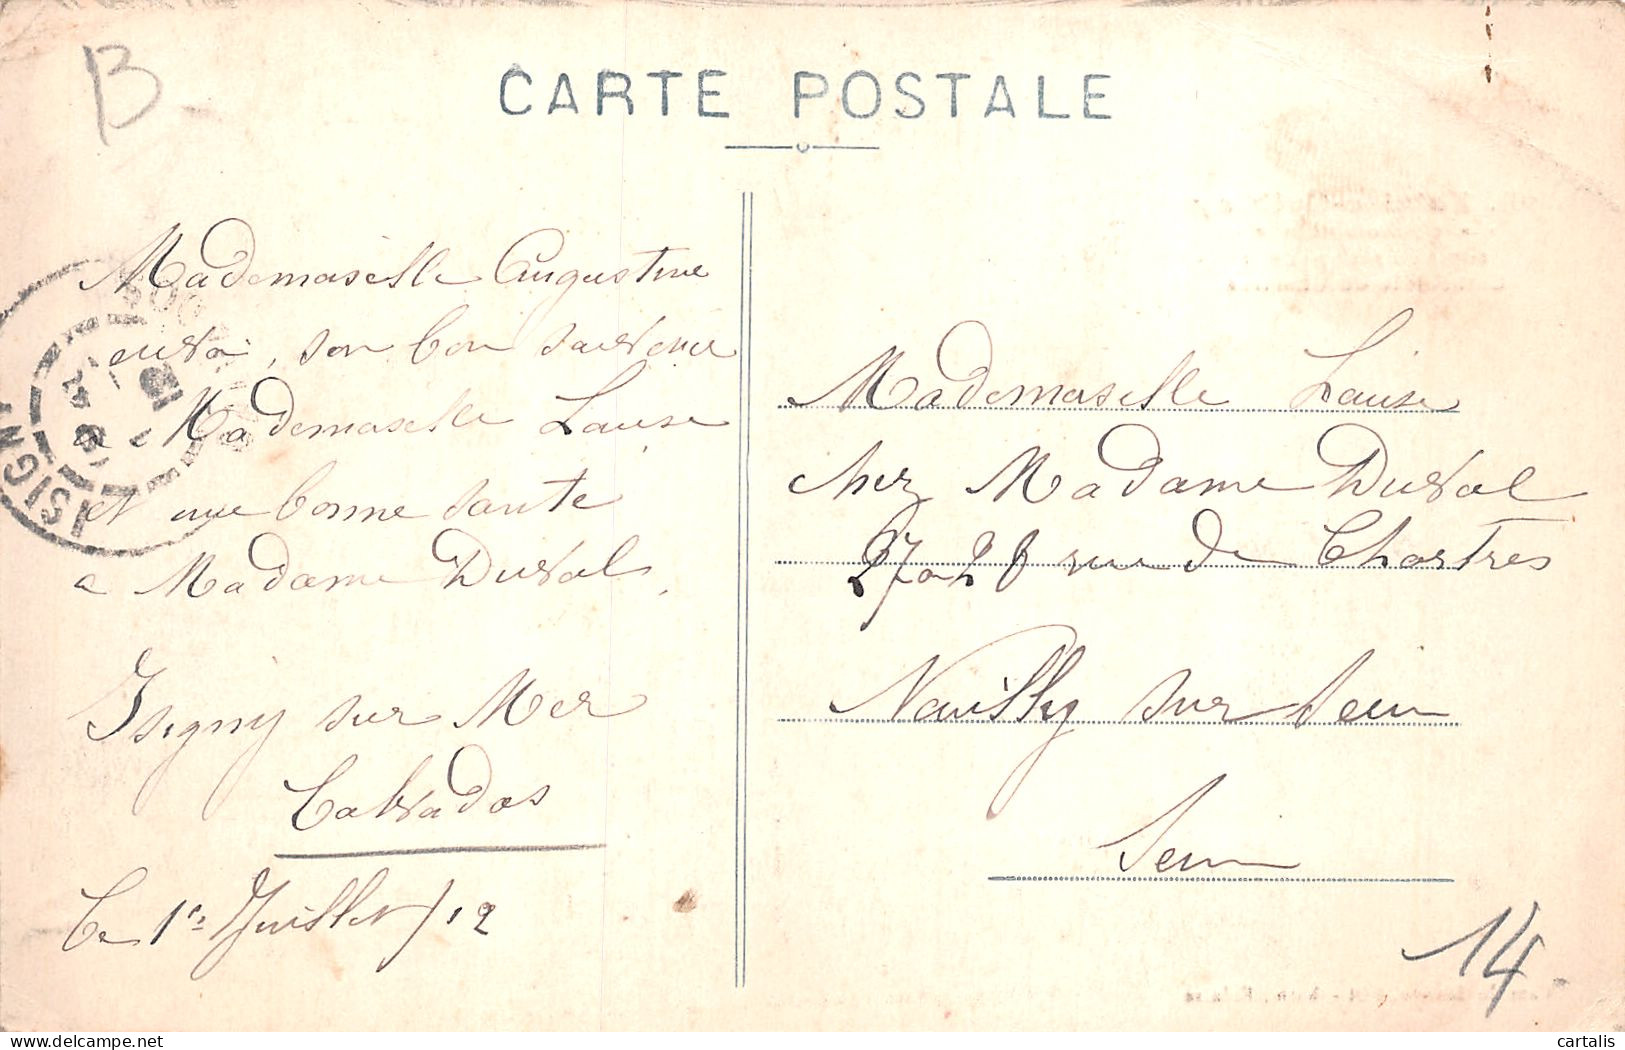 B
CARTE POSTALE
Mademoiselle Augustine
envoi, son bon souvenir
a Mademoiselle Louise
et une bonne sante
a Madame Duval,
Isigny sur Mer
Calvados
Ce 1er Juillet / 12
ISIGNY
Mademoiselle Louise
chez Madame Duval
rue de Chartres
Neuilly sur Seine
Seine
14
delcampe.net
cartalis